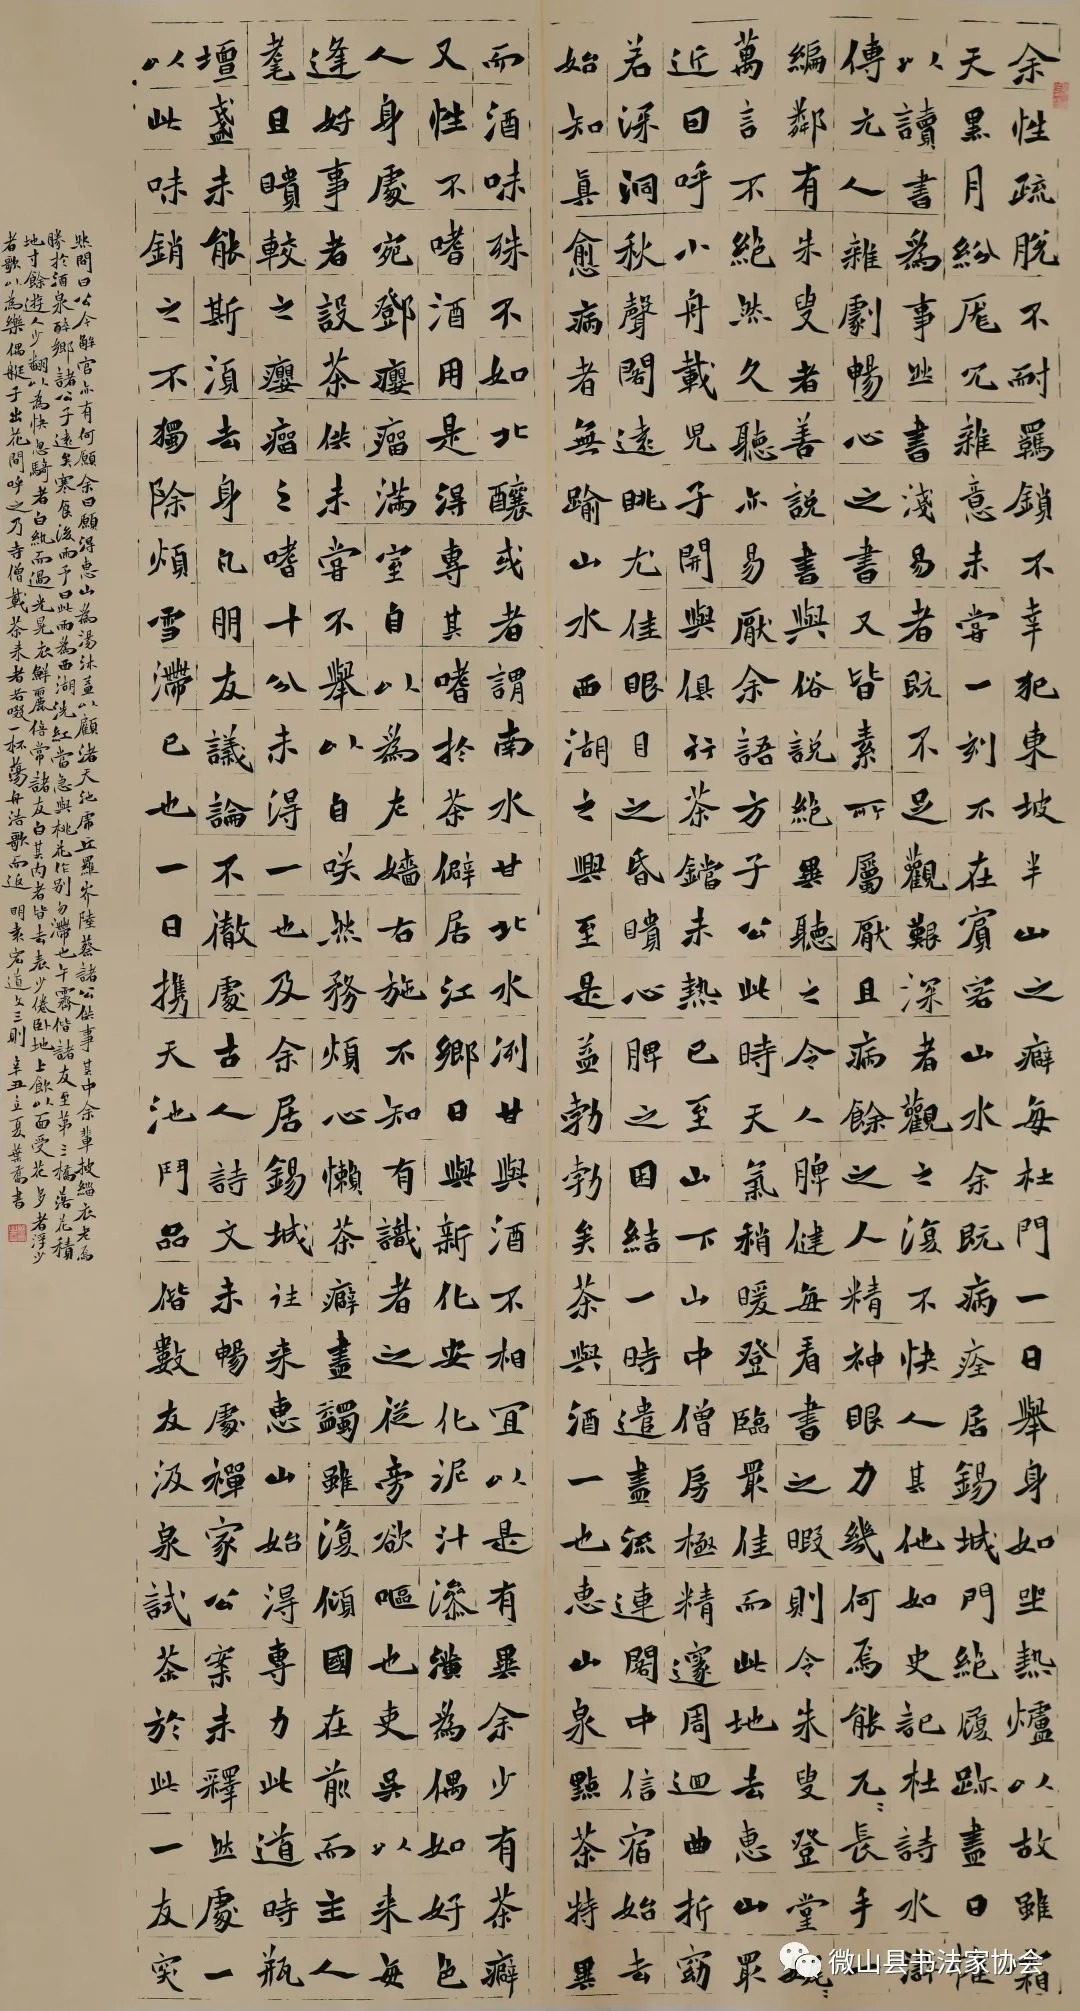 余性疏脱不耐羈鎖不幸犯東坡半山之癖每杜門一日舉身如坐熱爐以故雖霜
天黑月紛厖冗雜意未嘗一刻不在賓客山水余既病痊居錫城門絶履跡盡日惟
以讀書為事然書淺易者既不足觀艱深者觀之復不快人其他如史記杜詩水滸
傳元人雜劇暢心之書又皆素所屬厭且病餘之人精神眼力幾何焉能兀〻長手一
編鄰有朱叟者善說書與俗說絶異聽之令人脾健每看書之暇則令朱叟登堂娓〻
萬言不絶然久聽亦易厭余語方子公此時天氣稍暖登臨最佳而此地去惠山最
近因呼小舟載兒子開與俱行茶鐺未熱已至山下山中僧房極精邃周迴曲折窈
若深洞秋聲閣遠眺尤佳眼目之昏瞶心脾之困結一時遣盡流連閣中信宿始去
始知真愈病者無踰山水西湖之興至是益勃勃矣茶與酒一也惠山泉點茶特異
而酒味殊不如北釀或者謂南水甘北水冽甘與酒不相宜以是有異余少有茶癖
又性不嗜酒用是得專其嗜於茶僻居江鄉日與新化安化泥汁滲漬為偶如好色
人身處宛鄧癭瘤滿室自以為左嬙右施不知有識者之從旁欲嘔也吏吳以來每
逢好事者設茶供未嘗不舉以自咲然務煩心懶茶癖盡蠲雖復傾國在前而主人
耄且瞶較之癭瘤之嗜十分未得一也及余居錫城往来惠山始得專力此道時瓶
壇盞未能斯須去身凡朋友議論不徹處古人詩文未暢處禪家公案未釋然處一
以此味銷之不獨除煩雪滯已也一日攜天池鬥品偕數友汲泉試茶於此一友突
然問曰公今解官亦有何願余曰願得惠山為湯沐益以顧渚天池虎丘羅岕陸蔡諸公供事其中余輩披緇衣老焉
勝於酒泉醉鄉諸公子遠矣寒食後雨予曰此雨為西湖洗紅當急與桃花作别勿滯也午霽偕諸友至第三橋落花積
地寸餘遊人少翻以為快忽騎者白紈而過光晃衣鮮麗倍常諸友白其内者皆去表少倦卧地上飲以面受花多者浮少
者歌以為樂偶艇子出花間呼之乃寺僧載茶来者各啜一杯蕩舟浩歌而返 明袁宏道文三則 辛丑立夏葉喬書
微山县书法家协会